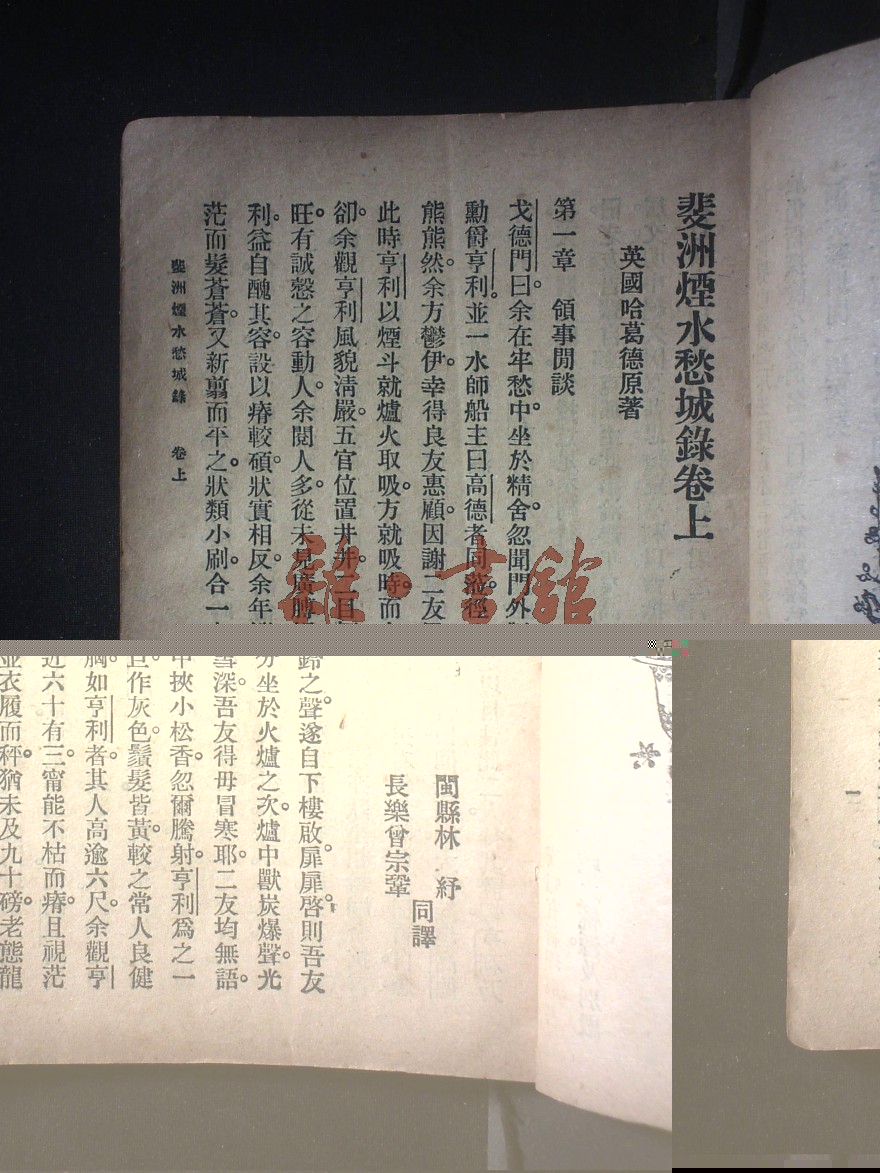 斐洲煙水愁城錄卷上
英國哈葛德原著
第一章 領事閒談
戈德門曰。余在牢愁中。坐於精舍。忽聞門外
勳爵亨利。並一水師船主曰高德者。同涖。徑
熊熊然。余方鬱伊。幸得良友惠顧。因謝二友
此時亨利以煙斗就爐火取吸。方就吸時。而
卻。余觀亨利風貌淸嚴。五官位置井井。二目
旺。有誠慤之容動人。余閱人多。從未見廣膊
利。益自醜其容。設以瘠較碩。狀實相反。余年
茫而髮蒼蒼。又新翦而平之。狀類小刷。合一
斐洲煙水愁城錄 卷上
雜·書館
閩縣林 紓
長樂曾宗鞏
同譯
鈴之聲。遂自下樓啟扉。扉啓則吾友
分坐於火爐之次。爐中獸炭爆聲。光
雪深。吾友得毋冒寒耶。二友均無語。
中挾小松香。忽爾騰射。亨利爲之一
且作灰色。鬚髮皆黃。較之常人良健
胸如亨利者。其人高逾六尺。余觀亨
近六十有三。甯能不枯而瘠。且視茫
並衣履而秤。猶未及九十磅。老態龍
一